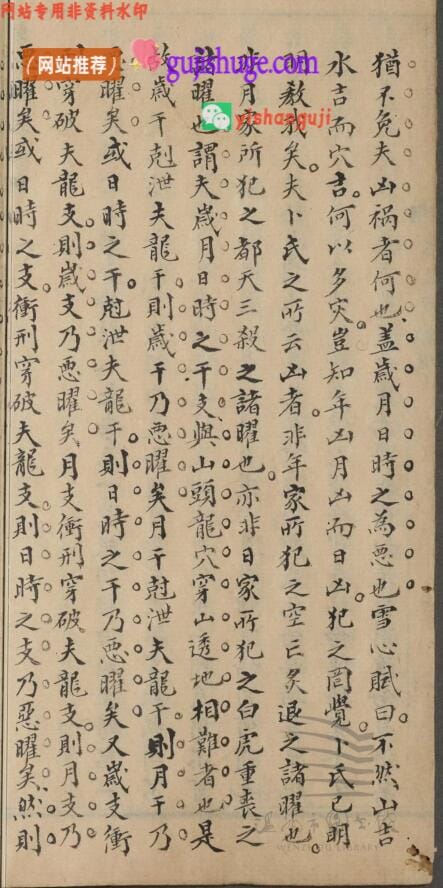 网站专用非资料水印
(网站推荐)
gujishuge.com
yishanguji
猶不免夫凶禍者何也蓋歲月日時之為惡也雪心賦曰不然山吉
水吉而穴吉何以多灾豈知年凶月凶而日凶犯之罔覺卜氏已明
明教我矣夫卜氏之所云凶者非年家所犯之空亡炙退之諸曜也
非月家所犯之都天三殺之諸曜也亦非日家所犯之白虎重喪之
諸曜也謂夫歲月日時之干支與山頭龍穴穿山透地相難者也是
故歲干尅泄夫龍干則歲干乃惡曜矣月干尅泄夫龍干則月干乃
曜矣或日時之干尅泄夫龍干則日時之干乃惡曜矣又歲支衝
穿破夫龍支則歲支乃惡曜矣月支衝刑穿破夫龍支則月支乃
惡曜矣或日時之支衝刑穿破夫龍支則日時之支乃惡曜矣然則